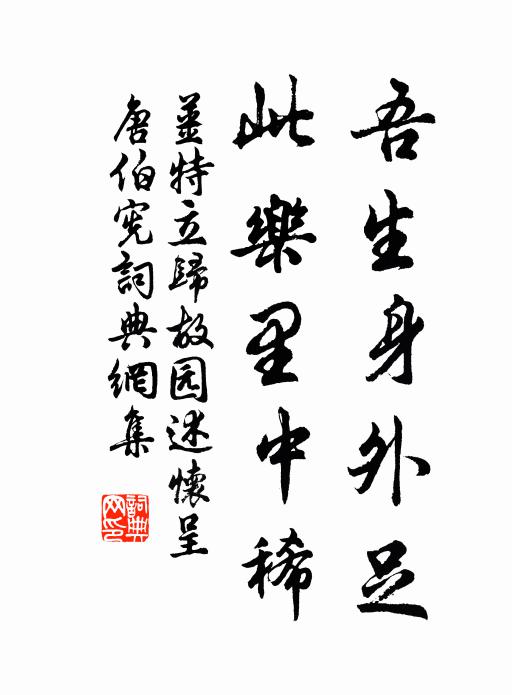 吾生身外足
此樂里中稀
姜特立歸故园述懷呈
唐伯宪詞典網集
詞典网印